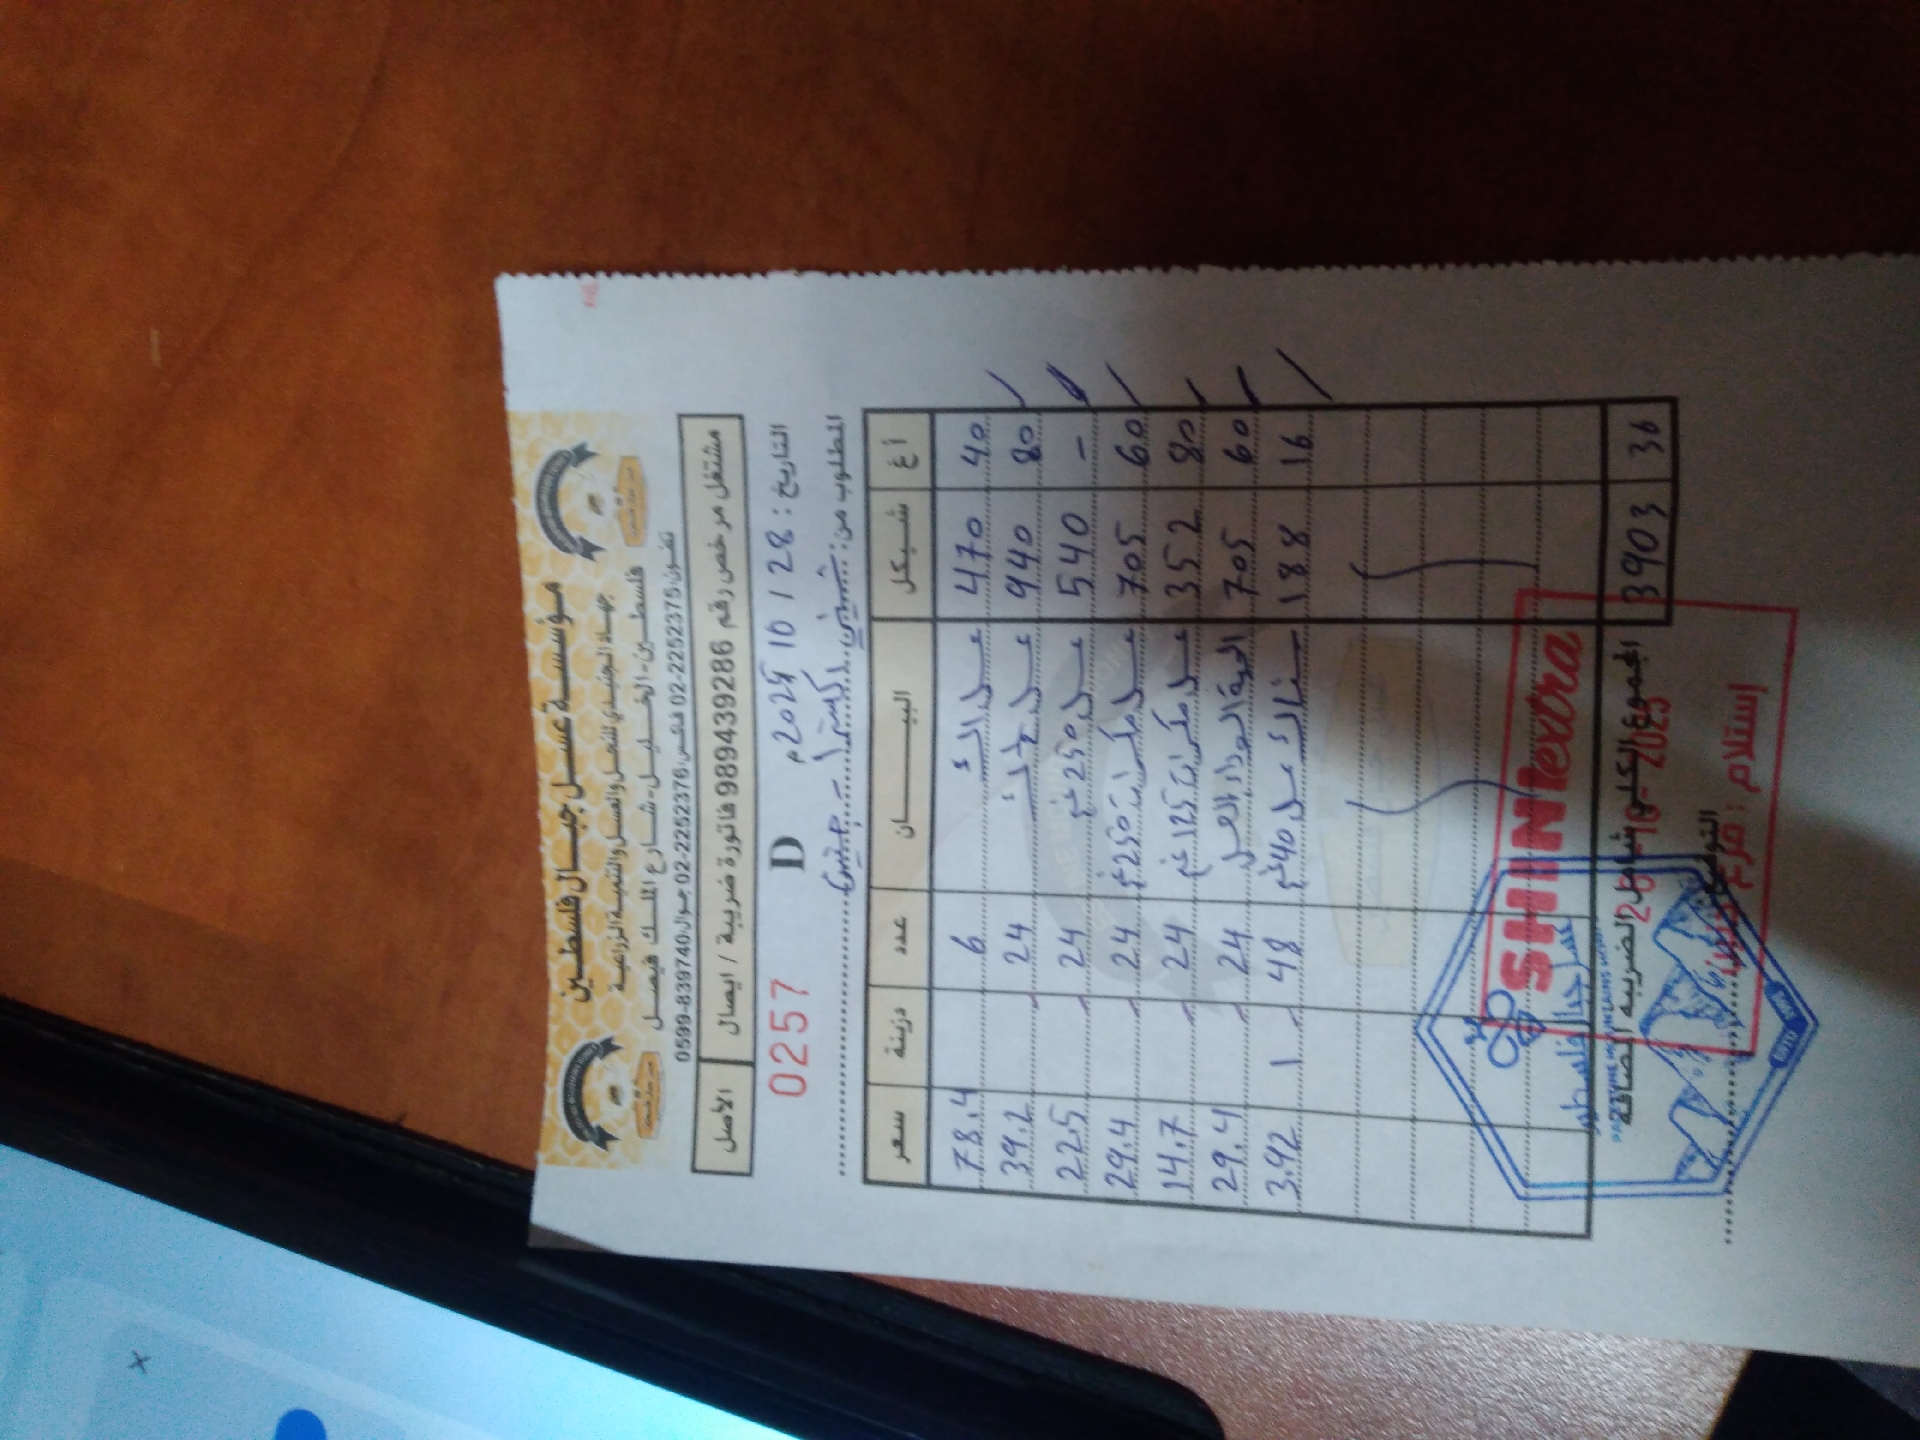 مؤسسة عسل جبال فلسطين
جهاد الجنيدي للنحل والعسل والتنمية الزراعية
فلسطين - الخليل - شارع الملك فيصل
تلفون: 2252375-02 فاكس: 2252376-02 جوال: 0599-839740
مشتغل مرخص رقم 989439286 فاتورة ضريبة / ايصال الأصل
التاريخ: 28 / 10 / 2025 م D 0257
المطلوب من: شيني اكسترا - جنين
أغ شيكل البيـــان عدد دزينة سعر
40 470 عسل 6 78.4
80 940 عسل 24 39.2
- 540 عسل 250 غم 24 22.5
60 705 عسل مكسرات 250 غم 24 29.4
80 352 عسل مكسرات 125 غم 24 14.7
60 705 العسل 24 29.4
16 188 عسل 40 غم 48 1 3.92
36 3903 المجموع الكلي شامل الضريبة المضافة
SHINI extra
28-10-2025
التوقيع
إستلام : فرع جنين
عسل جبال فلسطين
PALESTINE MOUNTAINS HONEY